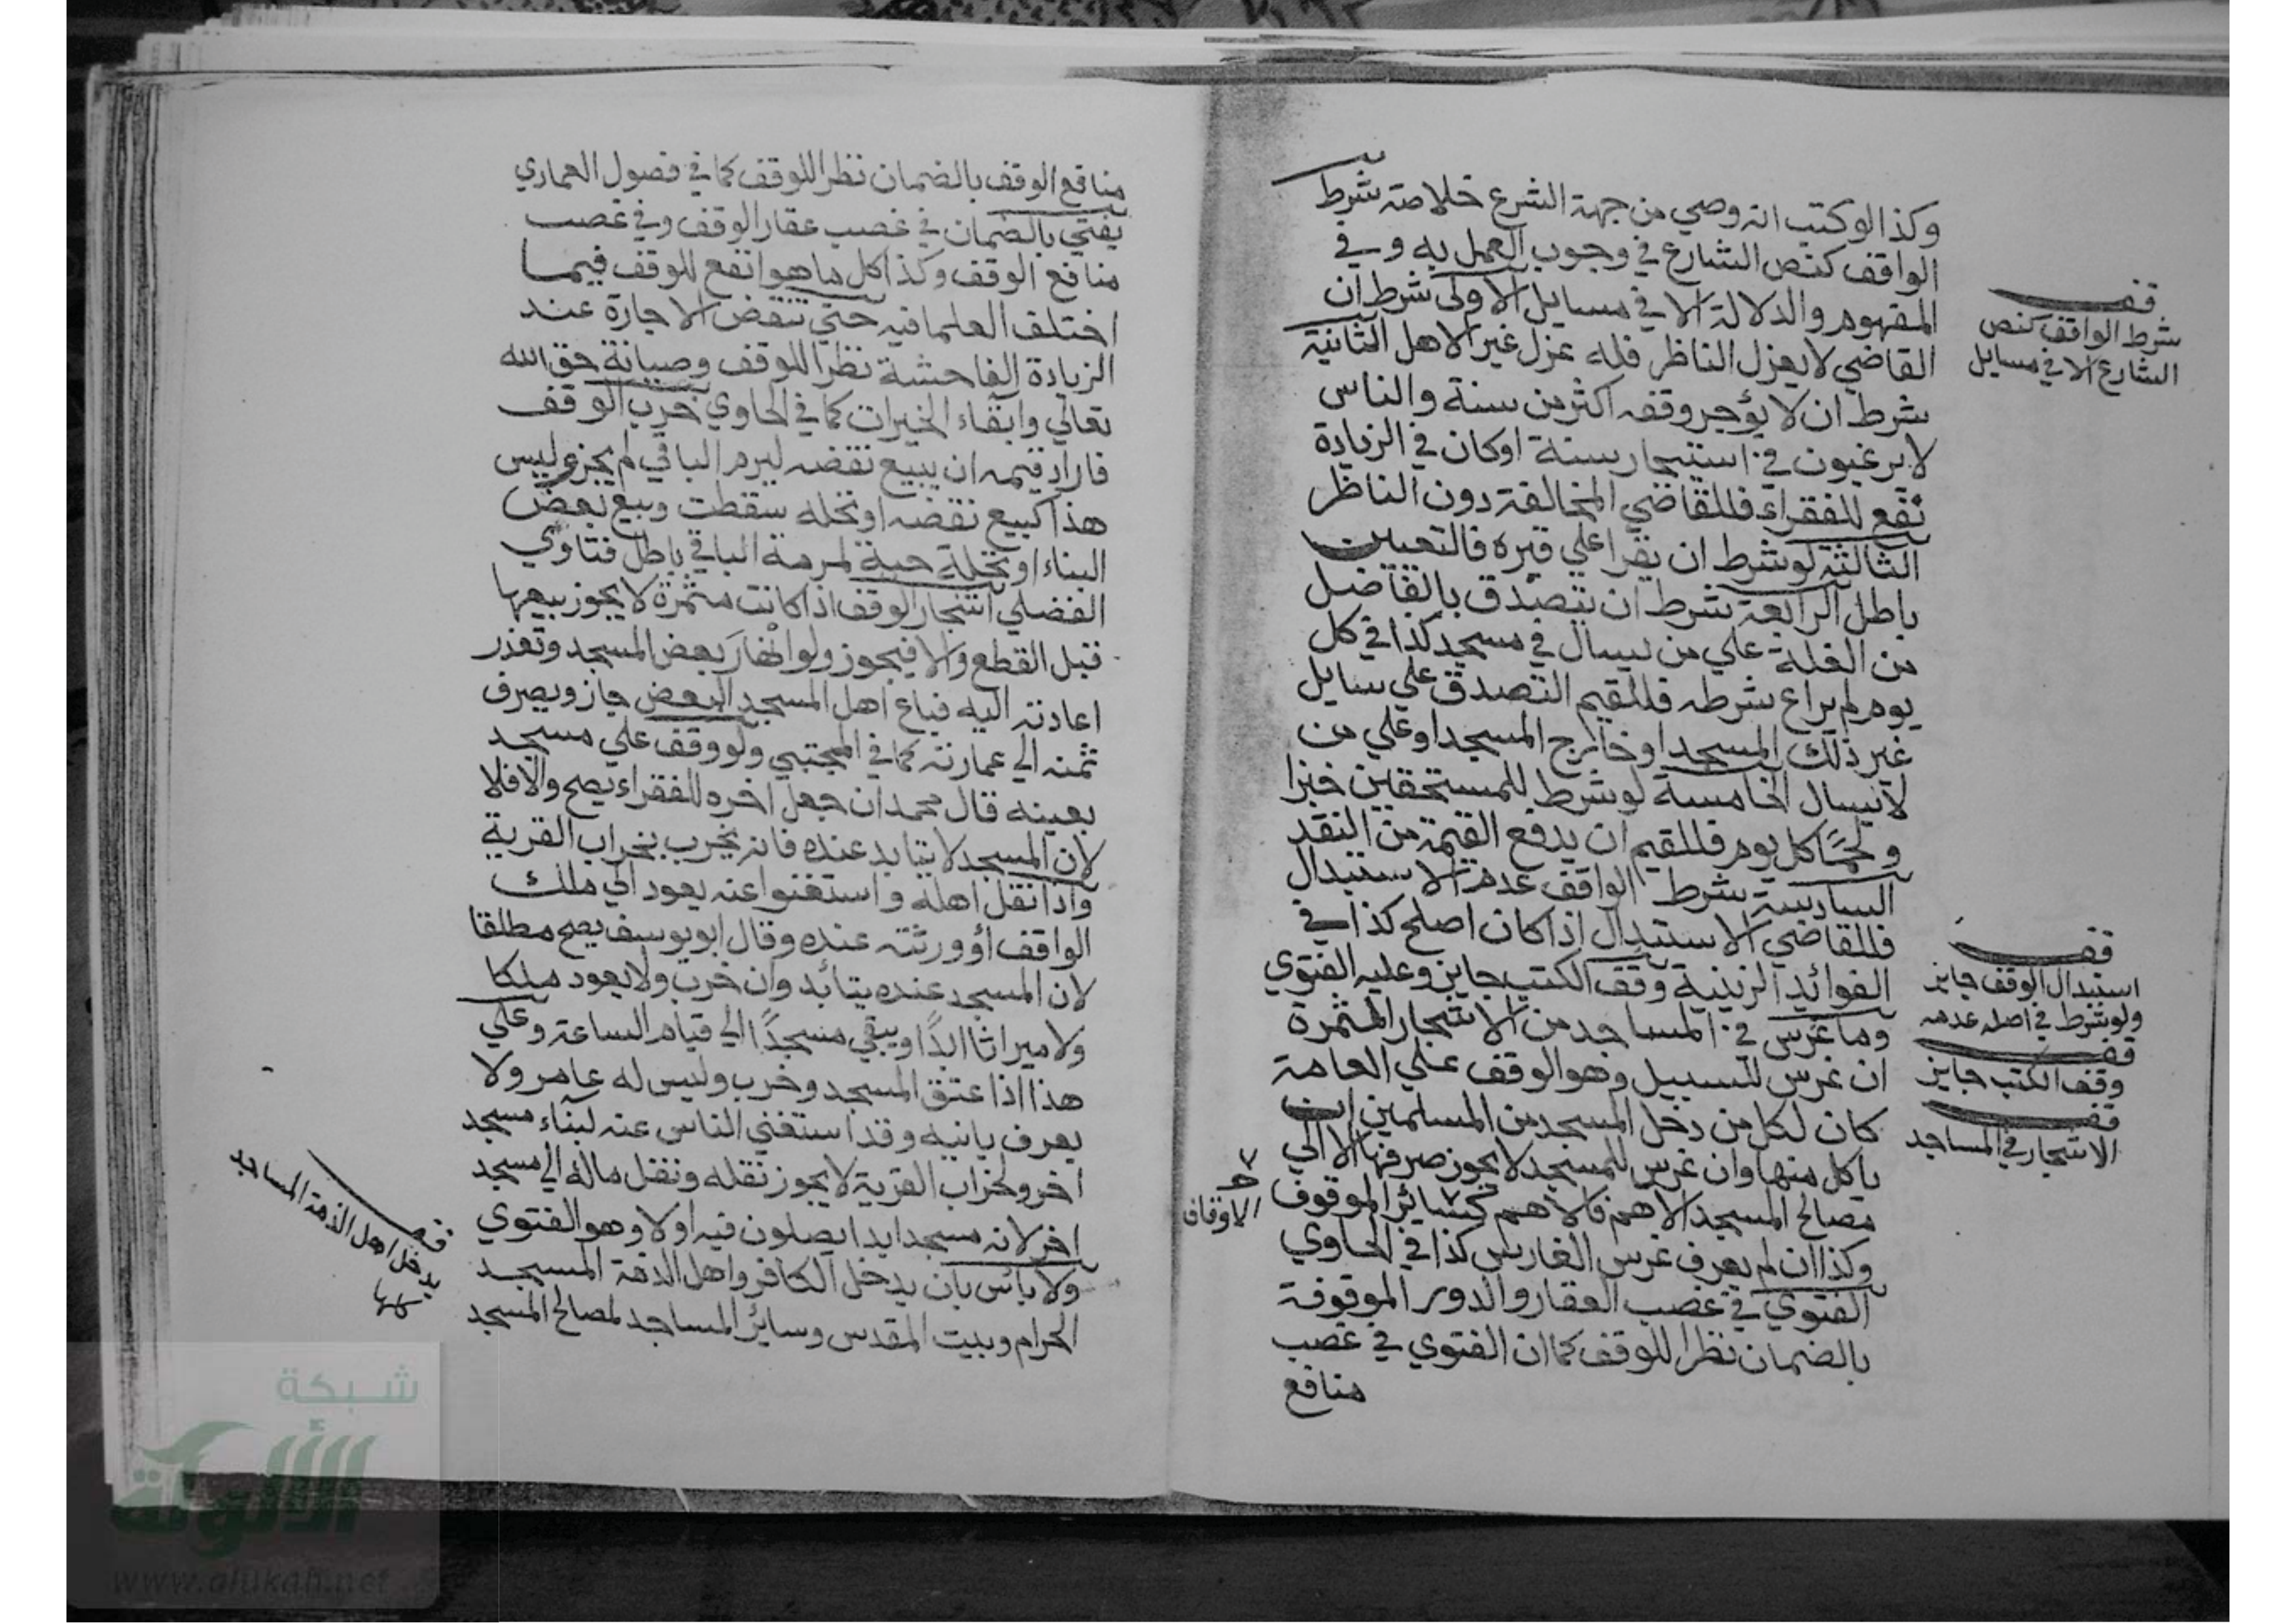 وكذا لو كتب انه وصي من جهة الشرع خلاصة شرط
الواقف كنص الشارع في وجوب العمل به وفي
المفهوم والدلالة الا في مسايل الاولى شرط ان
القاضي لا يعزل الناظر فله عزل غير الاهل الثانية
شرط ان لا يؤجر وقفه اكثر من سنة والناس
لا يرغبون في استيجار سنة او كان في الزيادة
نفع للفقراء فللقاضي المخالفة دون الناظر
الثالثة لو شرط ان يقرا علي قبره فالتعيين
باطل الرابعة شرط ان يتصدق بالفاضل
من الغلة علي من يسال في مسجد كذا في كل
يوم لم يراع شرطه فللقيم التصدق علي سايل
غير ذلك المسجد او خارج المسجد او علي من
لا يسال الخامسة لو شرط للمستحقين خبزا
ولحما كل يوم فللقيم ان يدفع القيمة من النقد
السادسة شرط الواقف عدم الاستبدال
فللقاضي الاستبدال اذا كان اصلح كذا في
الفوائد الزينية وقف الكتب جايز وعليه الفتوي
وما غرس في المساجد من الاشجار المثمرة
ان غرس للسبيل وهو الوقف علي العامة
كان لكل من دخل المسجد من المسلمين ان
ياكل منها وان غرس للمسجد لا يجوز صرفها الا الي
مصالح المسجد الاهم فالاهم كسائر الموقوف
وكذا ان لم يعرف غرس الغارس كذا في الحاوي
الفتوي في غصب العقار والدور الموقوفة
بالضمان نظرا للوقف كما ان الفتوي في غصب
منافع
قف
شرط الواقف كنص
الشارع الا في مسايل
قف
استبدال الوقف جايز
ولو شرط في اصله عدمه
قف
وقف الكتب جايز
قف
الاشجار في المساجد
الاوقاف
منافع الوقف بالضمان نظرا للوقف كما في فصول العماري
يفتي بالضمان في غصب عقار الوقف وفي غصب
منافع الوقف وكذا كل ما هو انفع للوقف فيما
اختلف العلما فيه حتي تنقض الاجارة عند
الزيادة الفاحشة نظرا للوقف وصيانة حق الله
تعالي وابقاء الخيرات كما في الحاوي خرب الوقف
فاراد قيمه ان يبيع نقضه ليرم الباقي لم يجز وليس
هذا كبيع نقضه او نخله سقطت وبيع بعض
البناء او نخلة حية لمرمة الباقي باطل فتاوي
الفضلي اشجار الوقف اذا كانت مثمرة لا يجوز بيعها
قبل القطع والا فيجوز ولو انهار بعض المسجد وتعذر
اعادته اليه فباع اهل المسجد البعض جاز ويصرف
ثمنه الي عمارته كما في المجتبي ولو وقف علي مسجد
بعينه قال محمد ان جعل اخره للفقراء يصح والا فلا
لان المسجد لا يتابد عنده فانه يخرب بخراب القرية
واذا نقل اهله واستغنوا عنه يعود الي ملك
الواقف او ورثته عنده وقال ابو يوسف يصح مطلقا
لان المسجد عنده يتابد وان خرب ولا يعود ملكا
ولا ميراثا ابدًا ويبقي مسجدًا الي قيام الساعة وعلي
هذا اذا عتق المسجد وخرب وليس له عامر ولا
يعرف بانيه وقد استغني الناس عنه لبناء مسجد
اخر ولخراب القرية لا يجوز نقله ونقل ماله الي مسجد
اخر لانه مسجد ابدا يصلون فيه او لا وهو الفتوي
ولا باس بان يدخل الكافر واهل الذمة المسجد
الحرام وبيت المقدس وسائر المساجد لمصالح المسجد
قف
يدخل اهل الذمة المساجد
شبكة
الألوكة
www.alukah.net